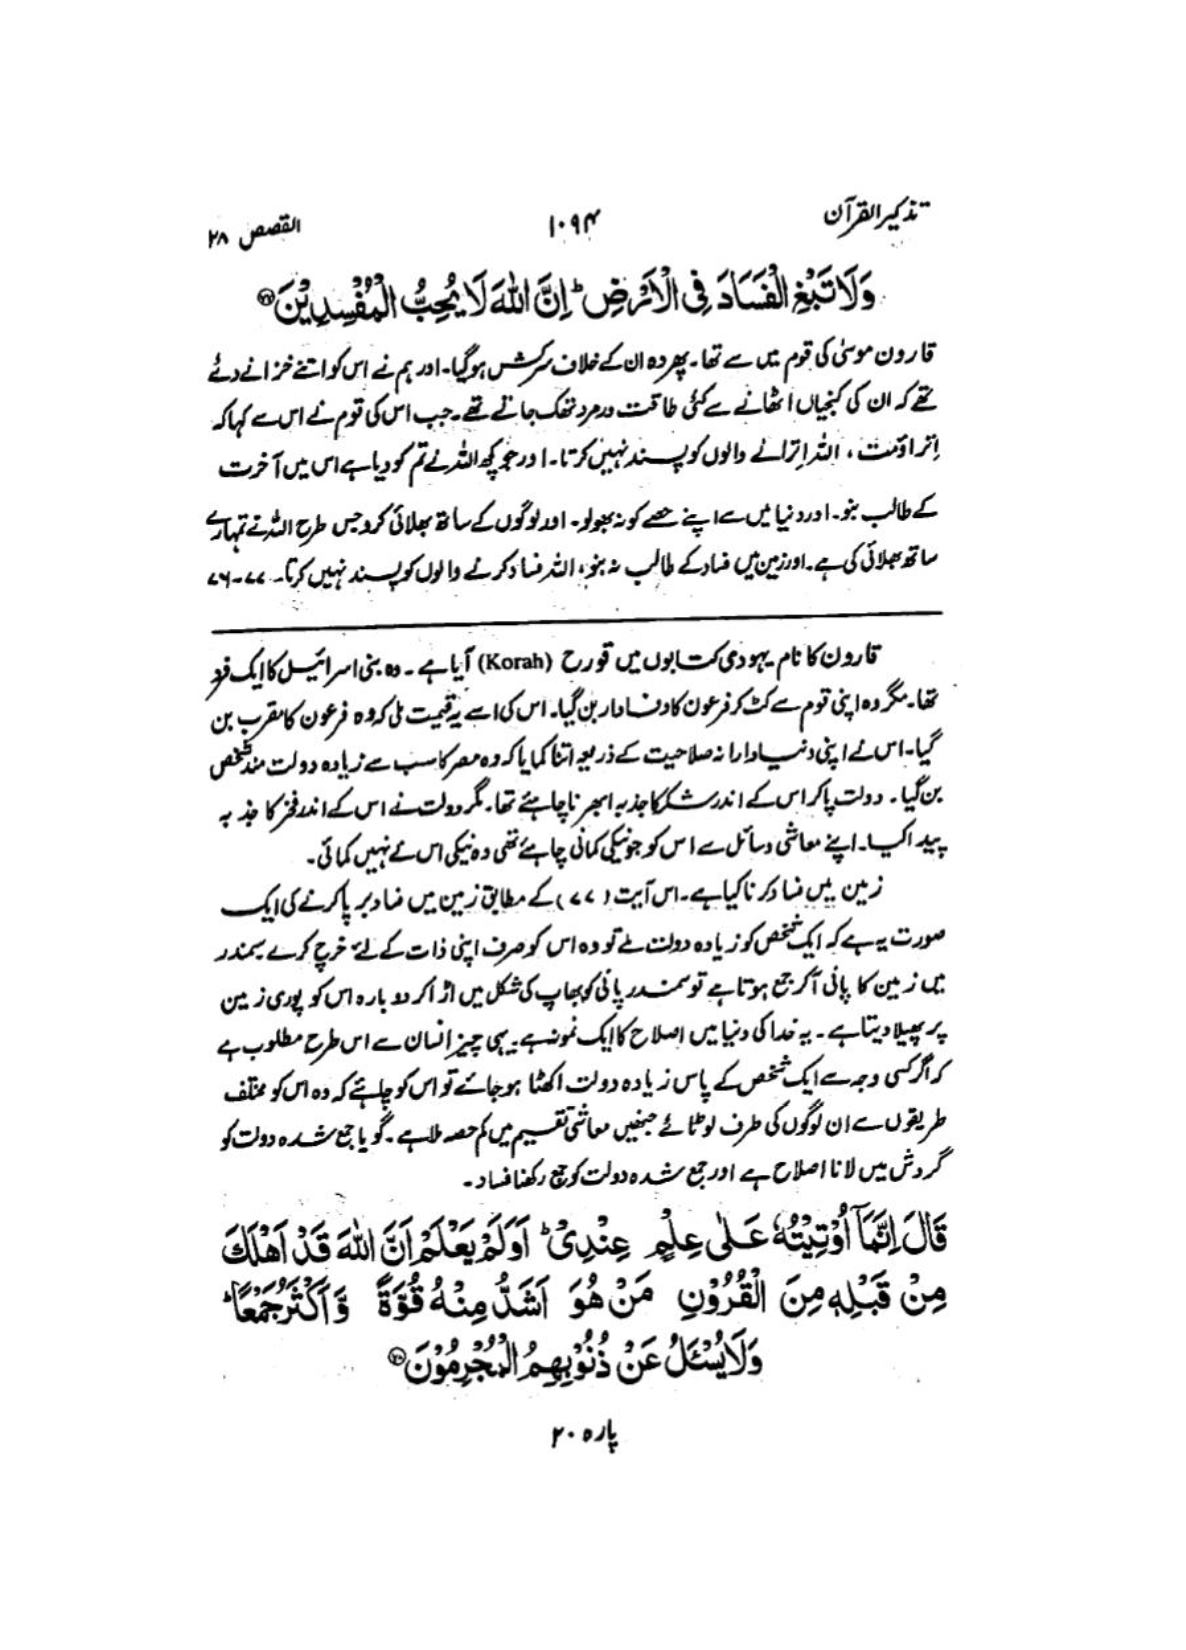 تذکیر القرآن ۱۰۹۴ القصص ۲۸
وَلَا تَبْغِ الْفَسَادَ فِی الْاَرْضِ ؕ اِنَّ اللّٰهَ لَا یُحِبُّ الْمُفْسِدِیْنَ ﴿۷۷﴾
قارون موسیٰ کی قوم میں سے تھا۔ پھر وہ ان کے خلاف سرکش ہوگیا۔ اور ہم نے اس کو اتنے خزانے دئے
تھے کہ ان کی کنجیاں اٹھانے سے کئی طاقت ور مرد تھک جاتے تھے۔ جب اس کی قوم نے اس سے کہا کہ
اِتراؤ مت، اللہ اِترانے والوں کو پسند نہیں کرتا۔ اور جو کچھ اللہ نے تم کو دیا ہے اس میں آخرت
کے طالب بنو۔ اور دنیا میں سے اپنے حصے کو نہ بھولو۔ اور لوگوں کے ساتھ بھلائی کرو جس طرح اللہ نے تمہارے
ساتھ بھلائی کی ہے۔ اور زمین میں فساد کے طالب نہ بنو، اللہ فساد کرنے والوں کو پسند نہیں کرتا۔ ۷۷-۷۶
قارون کا نام یہودی کتابوں میں قورح (Korah) آیا ہے۔ وہ بنی اسرائیل کا ایک فرد
تھا۔ مگر وہ اپنی قوم سے کٹ کر فرعون کا وفادار بن گیا۔ اس کی اسے یہ قیمت ملی کہ وہ فرعون کا مقرب بن
گیا۔ اس نے اپنی دنیادارانہ صلاحیت کے ذریعہ اتنا کمایا کہ وہ مصر کا سب سے زیادہ دولت مند شخص
بن گیا۔ دولت پاکر اس کے اندر شکر کا جذبہ ابھرنا چاہئے تھا۔ مگر دولت نے اس کے اندر فخر کا جذبہ
پیدا کیا۔ اپنے معاشی وسائل سے اس کو جو نیکی کمانی چاہئے تھی وہ نیکی اس نے نہیں کمائی۔
زمین میں فساد کرنا کیا ہے۔ اس آیت (۷۷) کے مطابق زمین میں فساد برپا کرنے کی ایک
صورت یہ ہے کہ ایک شخص کو زیادہ دولت ملے تو وہ اس کو صرف اپنی ذات کے لئے خرچ کرے۔ سمندر
میں زمین کا پانی آکر جمع ہوتا ہے تو سمندر پانی کو بھاپ کی شکل میں اڑا کر دوبارہ اس کو پوری زمین
پر پھیلا دیتا ہے۔ یہ خدا کی دنیا میں اصلاح کا ایک نمونہ ہے۔ یہی چیز انسان سے اس طرح مطلوب ہے
کہ اگر کسی وجہ سے ایک شخص کے پاس زیادہ دولت اکھٹا ہو جائے تو اس کو چاہئے کہ وہ اس کو مختلف
طریقوں سے ان لوگوں کی طرف لوٹائے جنھیں معاشی تقسیم میں کم حصہ ملا ہے۔ گویا جمع شدہ دولت کو
گردش میں لانا اصلاح ہے اور جمع شدہ دولت کو جمع رکھنا فساد۔
قَالَ اِنَّمَاۤ اُوْتِیْتُهٗ عَلٰی عِلْمٍ عِنْدِیْ ؕ اَوَلَمْ یَعْلَمْ اَنَّ اللّٰهَ قَدْ اَهْلَكَ
مِنْ قَبْلِهٖ مِنَ الْقُرُوْنِ مَنْ هُوَ اَشَدُّ مِنْهُ قُوَّةً وَّاَكْثَرُ جَمْعًا ؕ
وَلَا یُسْـَٔلُ عَنْ ذُنُوْبِهِمُ الْمُجْرِمُوْنَ ﴿۷۸﴾
پارہ ۲۰